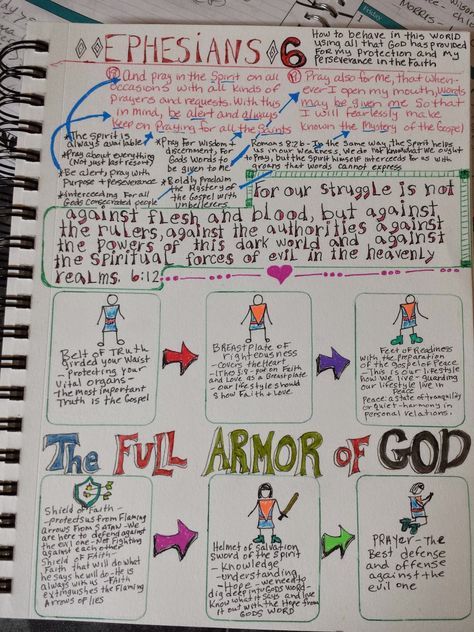 Friday
◊◊EPHESIANS◊6
How to behave in this WORLD
using all that GOD has provided
FOR my PROTECTION and my
Perseverance in the Faith
18 And pray in the Spirit on all
occasions with all kinds of
Prayers and requests. With this
in mind, be alert and always
keep on Praying for all the Saints
19 Pray also for me, that when-
ever I open my mouth, words
may be given me so that
I will fearlessly make
known the Mystery of the Gospel
*The Spirit is
always available
*Pray about everything
(Not just last resort)
*Be alert; pray with
Purpose + perseverance
*Interceding for all
Gods consecrated people
*Pray for wisdom +
discernment, for
Gods Words to
be given to me.
*Boldly Proclaim
the Mystery of
the Gospel with
unbelievers
Romans 8:26 - In the Same way, the Spirit helps
us in our weakness. We do not know what we ought
to pray, but the Spirit himself intercedes for us with
groans that words cannot express
For our struggle is not
against flesh and blood, but against
the rulers, against the authorities against
the powers of this dark world and against
the spiritual forces of evil in the heavenly
realms. 6:12
Belt of TRuth
Girded your Waist
- Protecting your
Vital organs -
The most important
Truth is the Gospel
BREastplate of
righteousness
- covers the Heart
- 1 Thes 5:8 - put on Faith
and Love as a Breastplate
- our lifestyle should
show Faith + Love
Feet of Readiness
with the Preparation
of the Gospel of Peace
- This is our lifestyle
how we live - guarding
our lifestyle live in
Peace
Peace: a state of tranquility
or quiet - harmony in
personal relations.
The FULL ARMOR OF GOD
Shield of Faith -
- protects us from Flaming
arrows From SATAN - We
are here to defend against
the evil one - Not Fighting
against each other
Shield of Faith -
Faith that will do what
he says he will do - He is
always with us - Faith
extinguishes the Flaming
Arrows of lies
Helmet of Salvation,
Sword of the Spirit
- Knowledge
- understanding
- Hope - we need to
dig deep into GODS WORD -
Know what it says and live
it out with the Hope from
GOD'S WORD
PRAYER - The
Best defense
and offense
against the
evil one